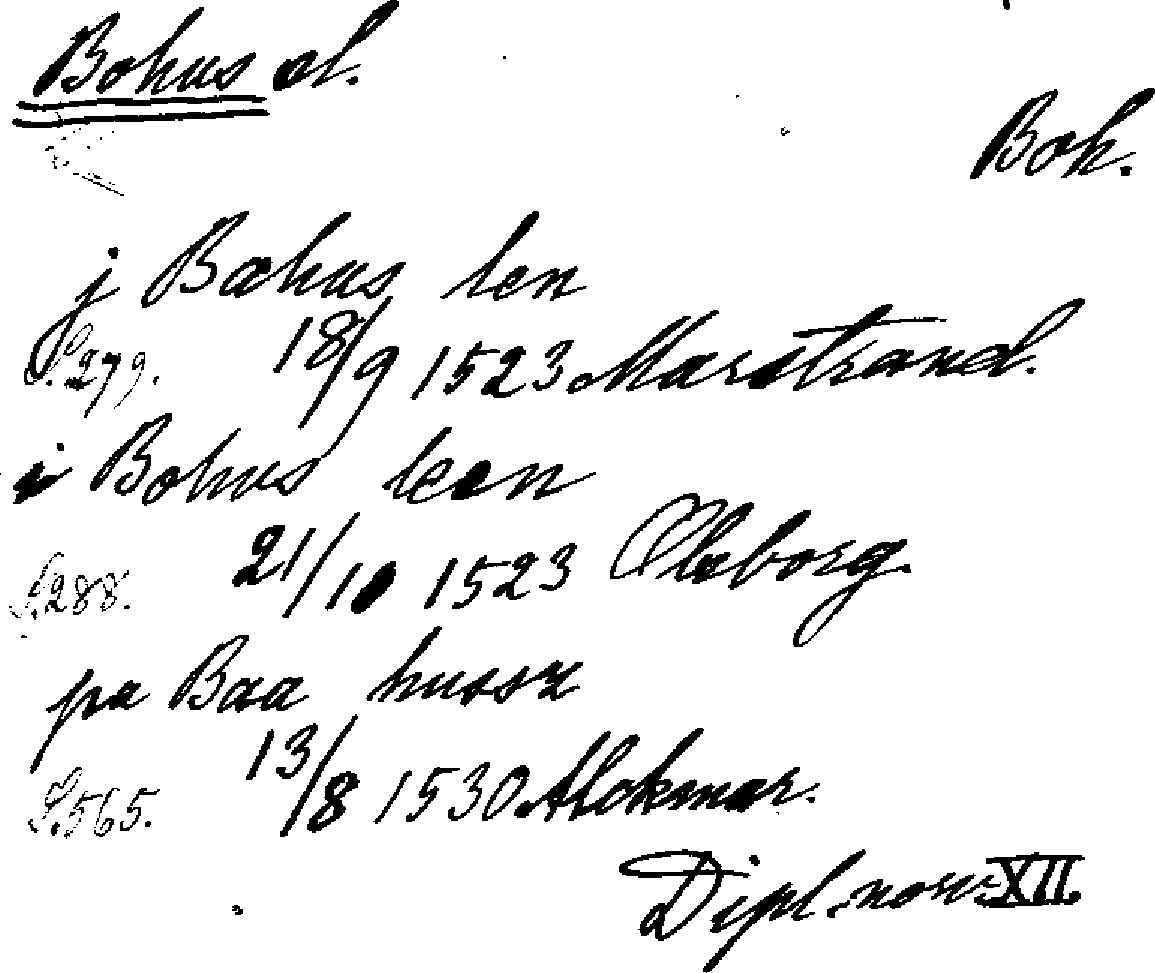 Bohus sl.
Boh.
j Bohus len
S. 279. 18/9 1523 Marstrand.
i Bohus leen
S. 288. 21/10 1523 Oleborg.
pa Baa hussz
S. 565. 13/8 1530 Alckmar.
Dipl. norv. XII.